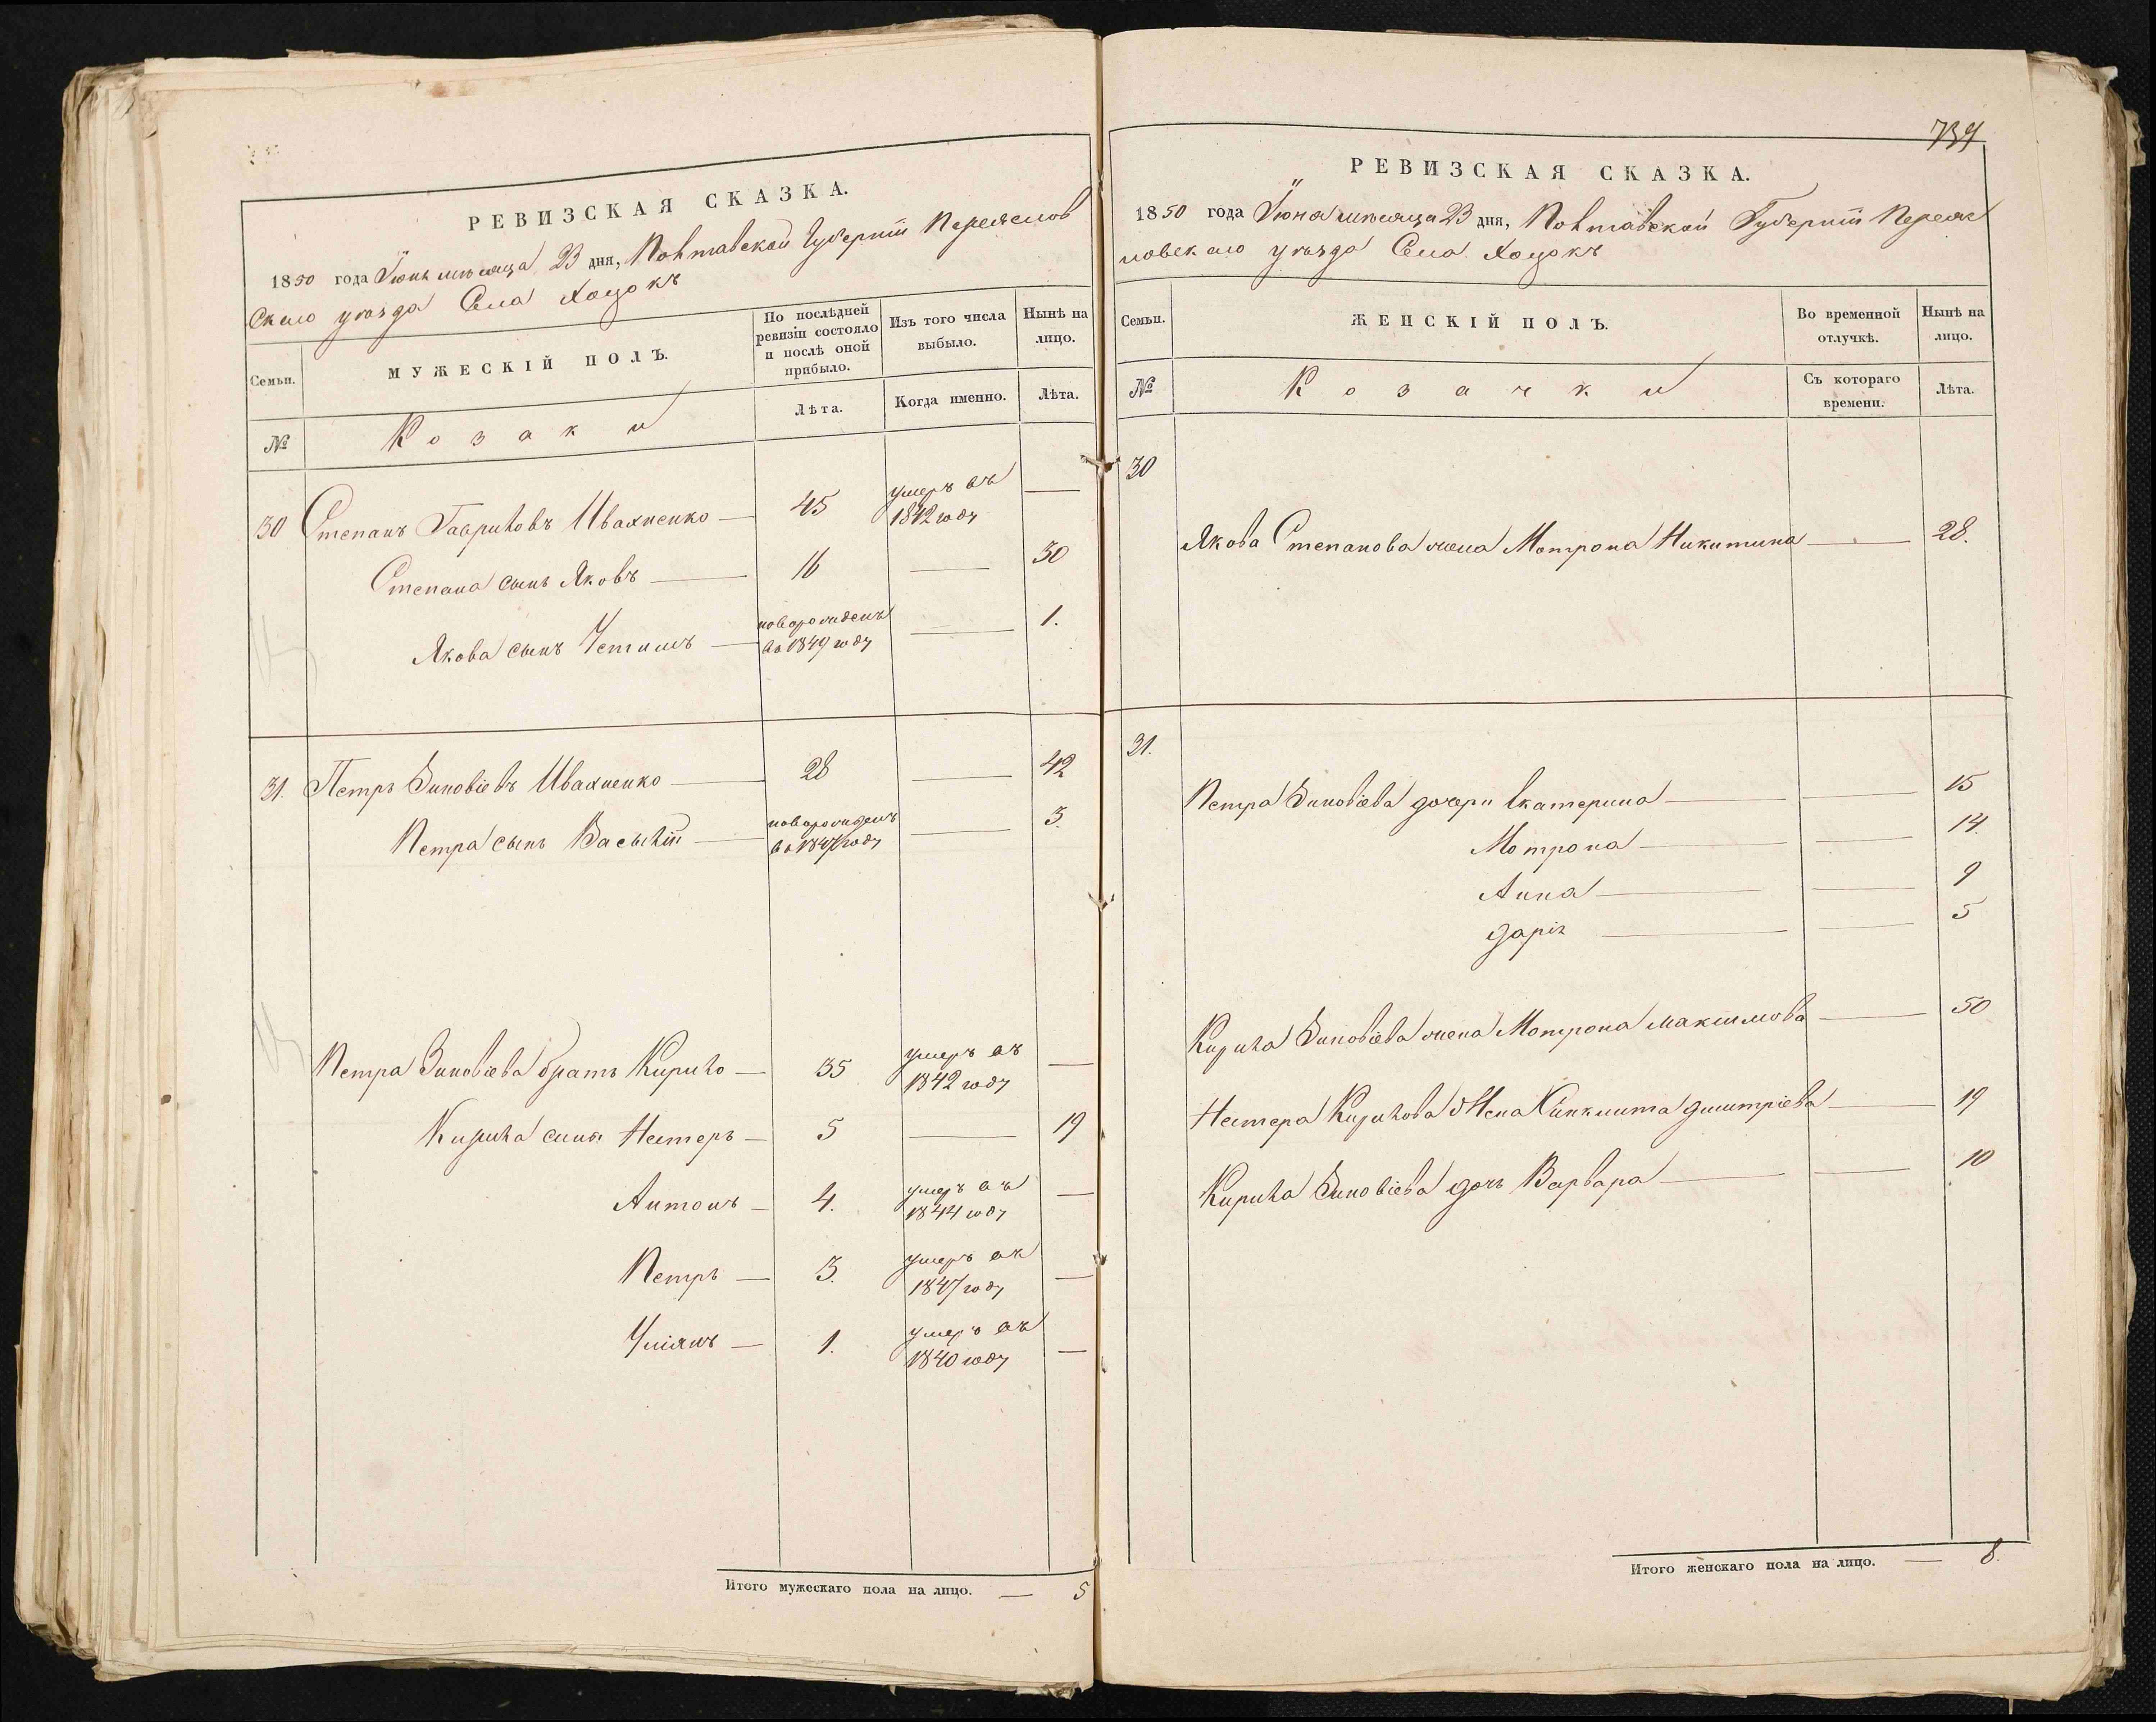 РЕВИЗСКАЯ СКАЗКА.
1850 года Іюнь мѣсяца 23 дня, Полтавской Губерніи Переяслов
Скаго уѣзда Села Хоцокъ
Семьи.
МУЖЕСКІЙ ПОЛЪ.
По послѣдней
ревизіи состояло
и послѣ оной
прибыло.
Изъ того числа
выбыло.
Нынѣ на
лицо.
№
Козаки
Лѣта.
Когда именно.
Лѣта.
30 Степанъ Гавриловъ Ивахненко — 45 умеръ въ —
1842 году
Степана сынъ Яковъ — 16 — 30
Якова сынъ Устимъ — новорожденъ — 1.
въ 1849 году
31. Петръ Зиновіевъ Ивахненко — 28 — 42
Петра сынъ Василій — новорожденъ — 3.
въ 1847 году
Петра Зиновіева братъ Кирило — 35 умеръ въ —
1842 году
Кирила сыны Нестеръ — 5 — 19
Антонъ — 4. умеръ въ —
1844 году
Петръ — 3. умеръ въ —
1847 году
Уліянъ — 1. умеръ въ —
1840 году
Итого мужескаго пола на лицо. — 5
739
РЕВИЗСКАЯ СКАЗКА.
1850 года Іюня мѣсяца 23 дня, Полтавской Губерніи Переяс
ловскаго уѣзда Села Хоцокъ
Семьи.
ЖЕНСКІЙ ПОЛЪ.
Во временной
отлучкѣ.
Нынѣ на
лицо.
№
Козачки
Съ котораго
времени.
Лѣта.
30
Якова Степанова жена Мотрона Никитина — 28.
31.
Петра Зиновіева дочери Екатерина — — 15
Мотрона — — 14.
Анна — — 9
Дарія — — 5
Кирила Зиновіева жена Мотрона Максимова — 50
Нестера Кирилова Жена Дмитріева — 19
Кирила Зиновіева дочь Варвара — — 10
Итого женскаго пола на лицо. — 8.